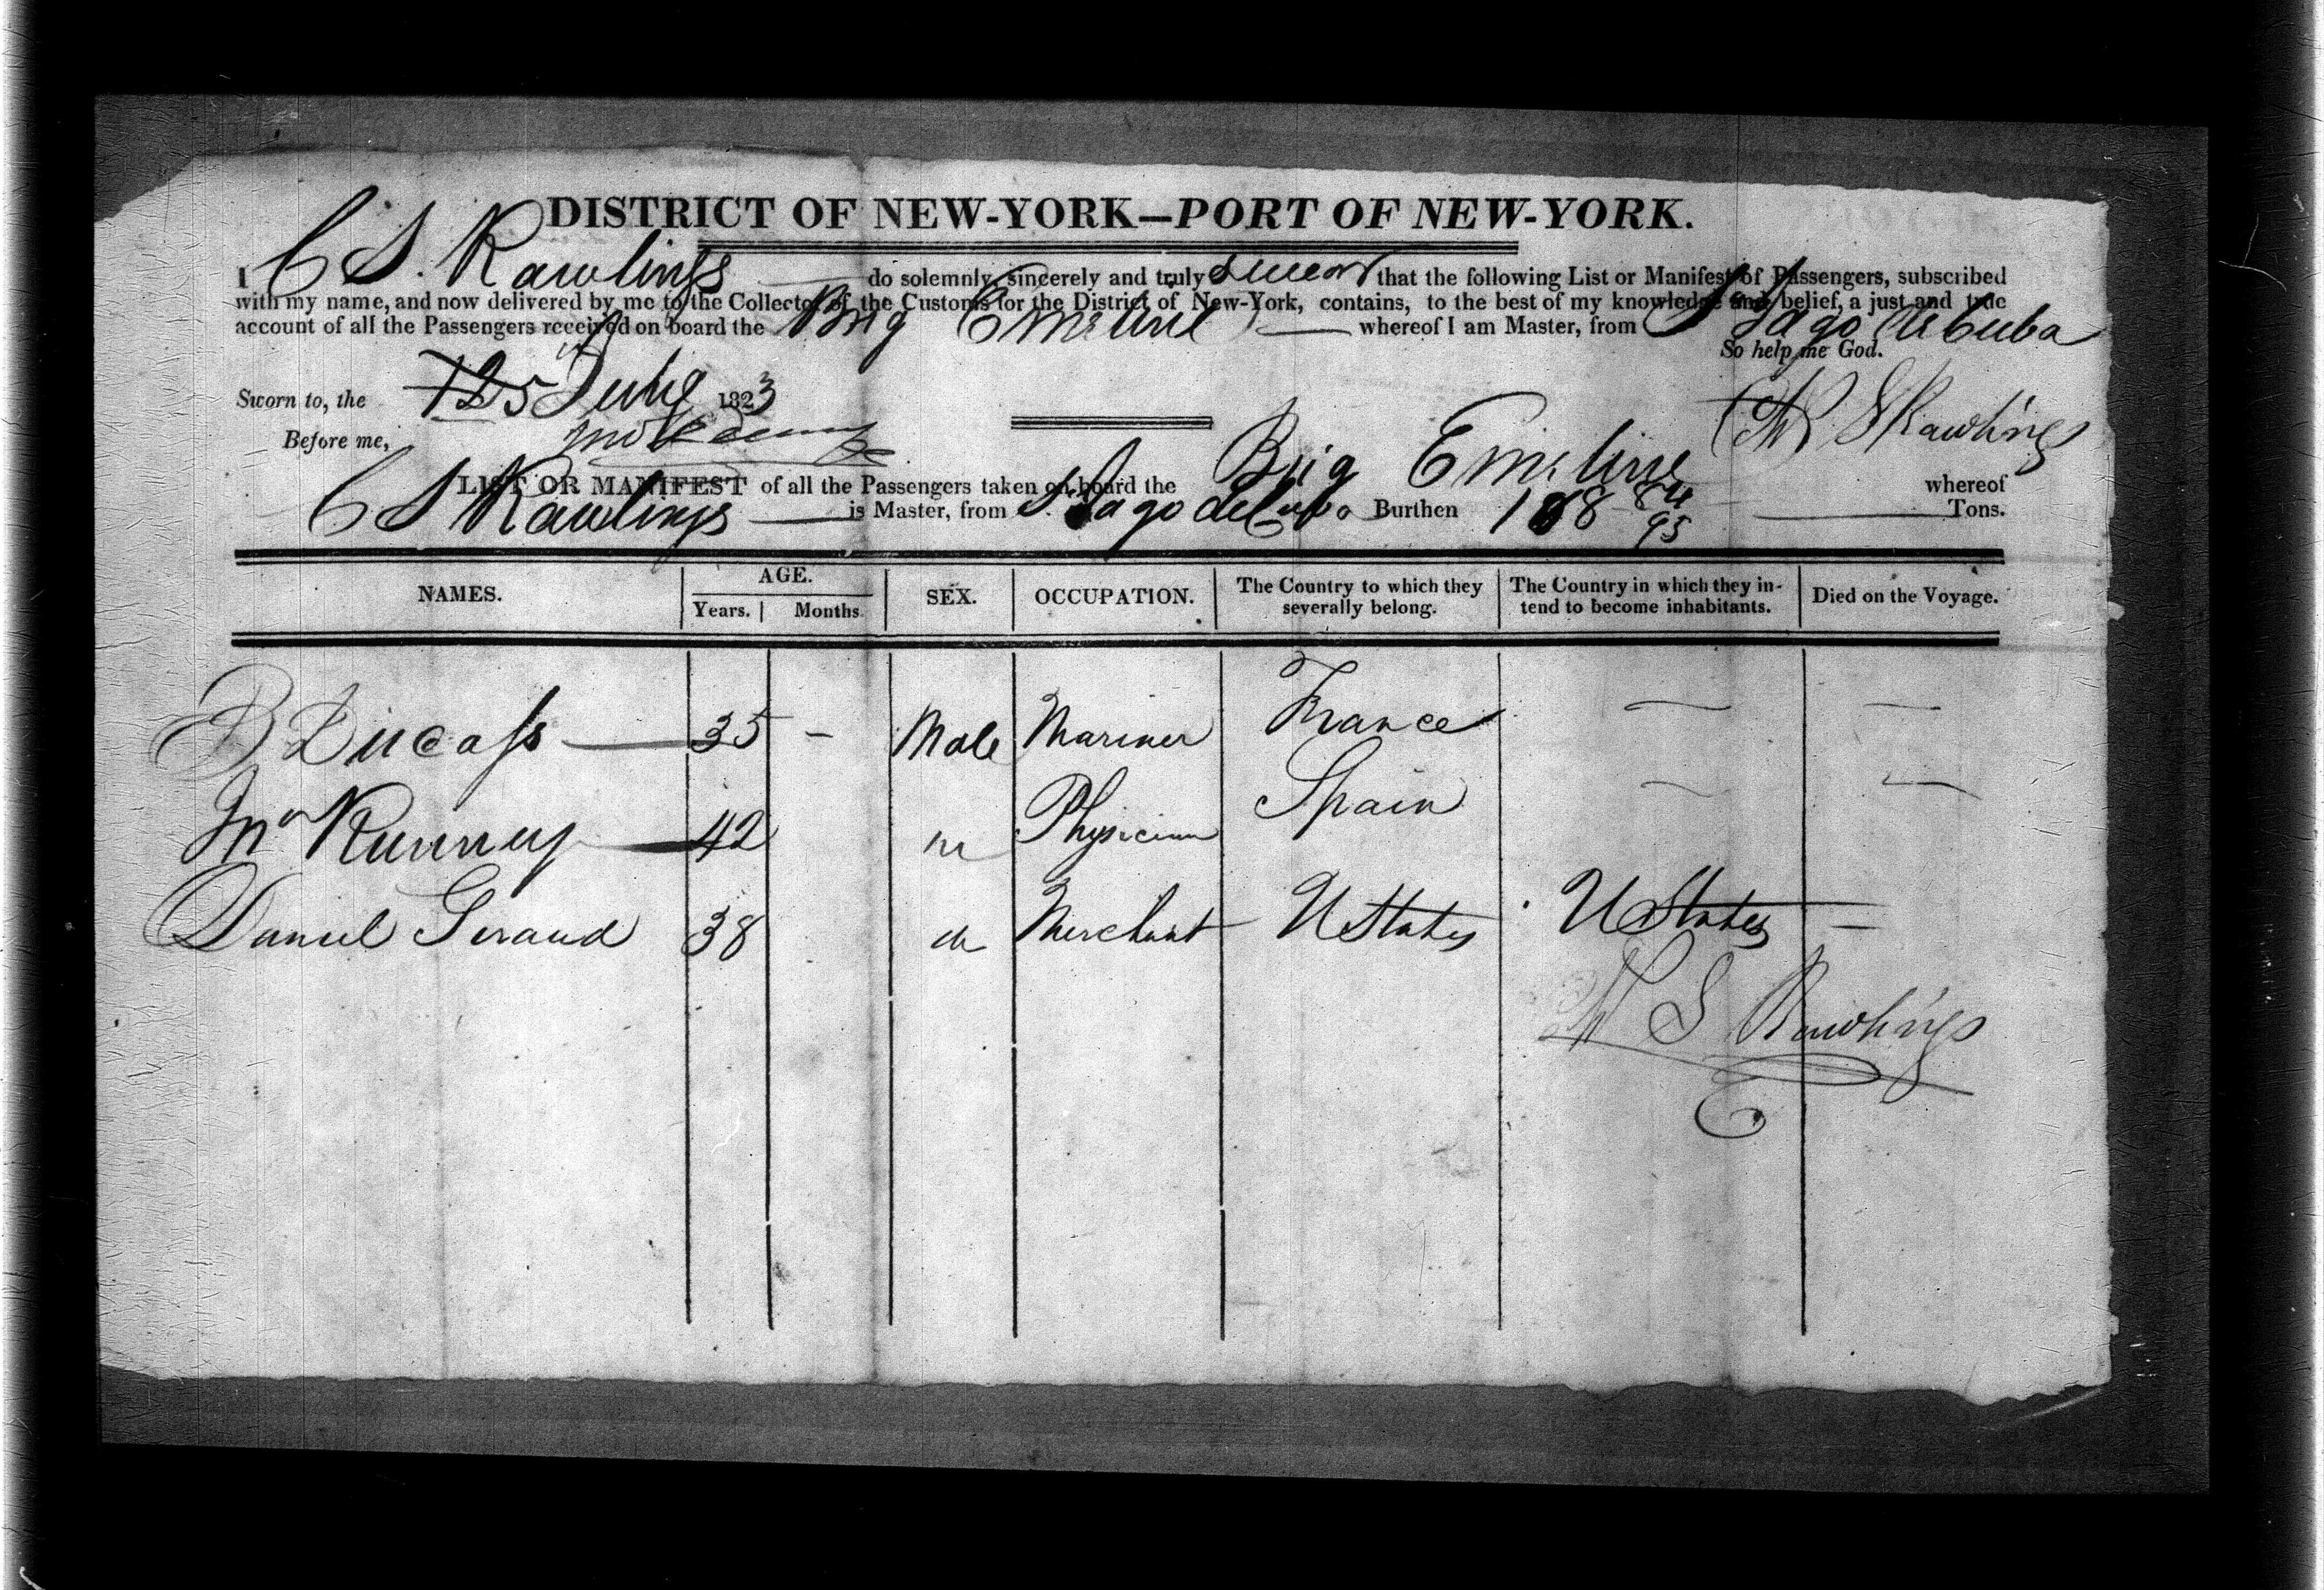 DISTRICT OF NEW-YORK—PORT OF NEW-YORK.
I C S. Rawlings do solemnly, sincerely and truly swear that the following List or Manifest of Passengers, subscribed
with my name, and now delivered by me to the Collector of the Customs for the District of New-York, contains, to the best of my knowledge and belief, a just and true
account of all the Passengers received on board the Brig Emeline whereof I am Master, from St Iago de Cuba
So help me God.
Sworn to, the 25 July 1823
Before me,
S Rawlings
LIST OR MANIFEST of all the Passengers taken on board the Brig Emeline whereof
C S Rawlings is Master, from St Iago de Cuba Burthen 168 84/95 Tons.
NAMES. AGE. Years. Months. SEX. OCCUPATION. The Country to which they severally belong. The Country in which they intend to become inhabitants. Died on the Voyage.
B Ducass 35 - Male Mariner France — —
Mr 42 Physician Spain — —
Daniel Geraud 38 Merchant U States U States —
S Rawlings